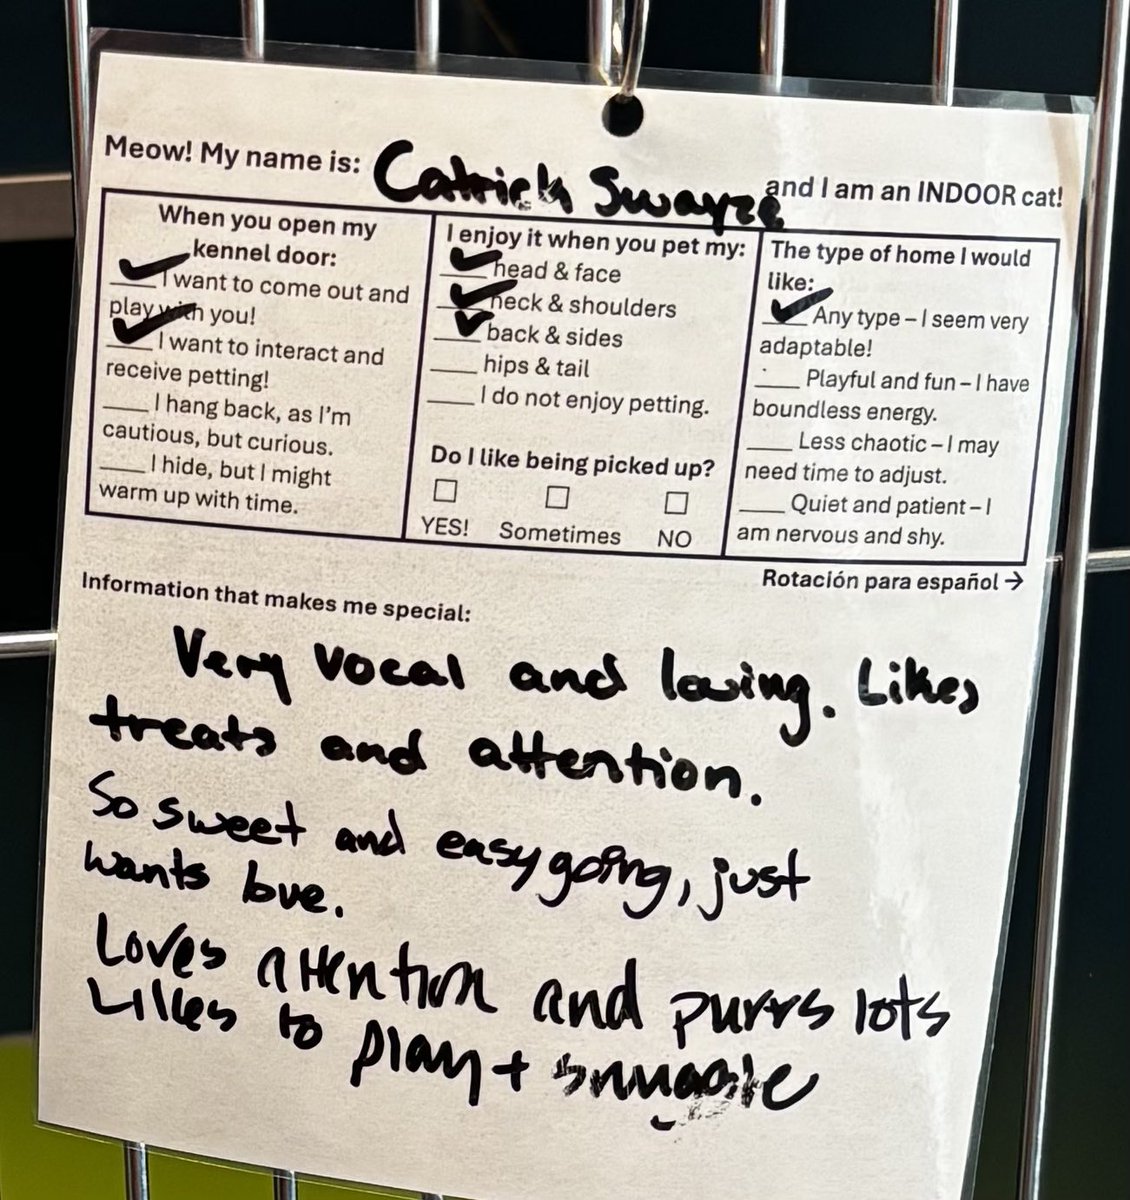 Meow! My name is: Catrick Swayze and I am an INDOOR cat!
When you open my
kennel door:
I want to come out and
play with you!
I want to interact and
receive petting!
I hang back, as I'm
cautious, but curious.
I hide, but I might
warm up with time.
I enjoy it when you pet my:
head & face
neck & shoulders
back & sides
hips & tail
I do not enjoy petting.
Do I like being picked up?
YES! Sometimes NO
The type of home I would
like:
Any type – I seem very
adaptable!
Playful and fun – I have
boundless energy.
Less chaotic – I may
need time to adjust.
Quiet and patient – I
am nervous and shy.
Rotación para español →
Information that makes me special:
Very vocal and loving. Likes
treats and attention.
So sweet and easy going, just
wants love.
Loves attention and purrs lots
Likes to play + snuggle